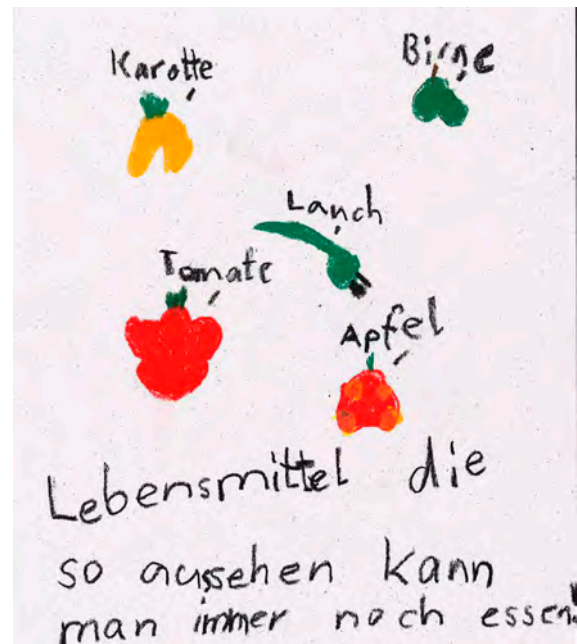 Karotte
Birne
Lanch
Tomate
Apfel
Lebensmittel die
so aussehen kann
man immer noch essen!